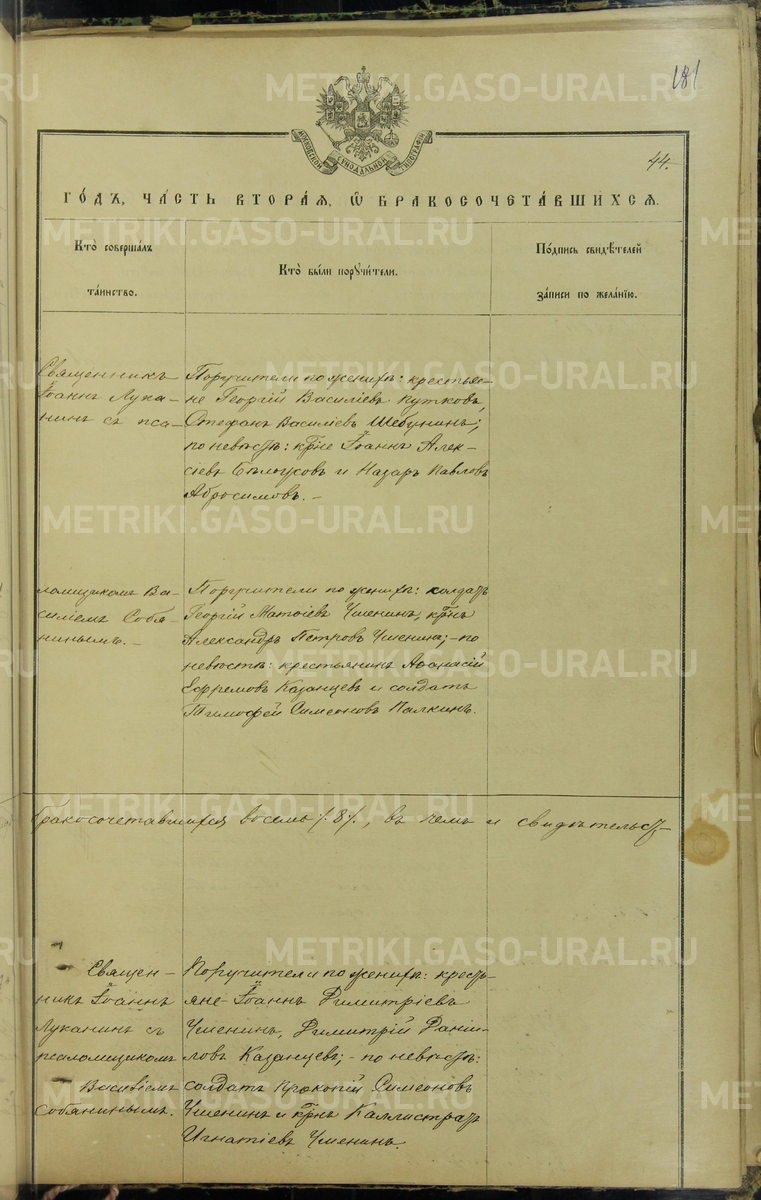 181
МОСКОВСКОЙ СѴНОДАЛЬНОЙ ТИПОГРАФІИ
44.
ГО́ДЪ, ЧА́СТЬ ВТОРА́Я, Ѿ БРАКОСОЧЕТА́ВШИХСЯ.
Кто̀ соверша́лъ
та́инство.
Кто̀ бы́ли порꙋчи́тели.
По́дпись свидѣ́телей
за́писи по жела́нїю.
Священникъ
Іоаннъ Лука-
нинъ съ пса-
Поручители по женихѣ: крестья-
не Георгій Василіевъ Путковъ,
Стефанъ Василіевъ Шебунинъ;
по невѣстѣ: кр̃не Іоаннъ Алек-
сіевъ Бѣлоусовъ и Назаръ Павловъ
Абросимовъ. –
ломщикомъ Ва-
силіемъ Собя-
нинымъ. –
Поручители по женихѣ: солдатъ
Георгій Матѳіевъ Чменинъ, кр̃нъ
Александръ Петровъ Чменинъ; – по
невѣстѣ: крестьянинъ Аѳанасій
Ефремовъ Казанцевъ и солдатъ
Тимофей Симеоновъ Палкинъ.
бракосочетавшихся восемь /:8/., въ чемъ и свидѣтельст-
Священ-
никъ Іоаннъ
Луканинъ съ
псаломщикомъ
Василіемъ
Собянинымъ.
Поручители по женихѣ: кресть-
яне Іоаннъ Димитріевъ
Чменинъ, Димитрій Даніи-
ловъ Казанцевъ; – по невѣстѣ:
солдатъ Прокопій Симеоновъ
Чменинъ и кр̃нъ Каллистратъ
Игнатіевъ Чменинъ.
METRIKI.GASO-URAL.RU